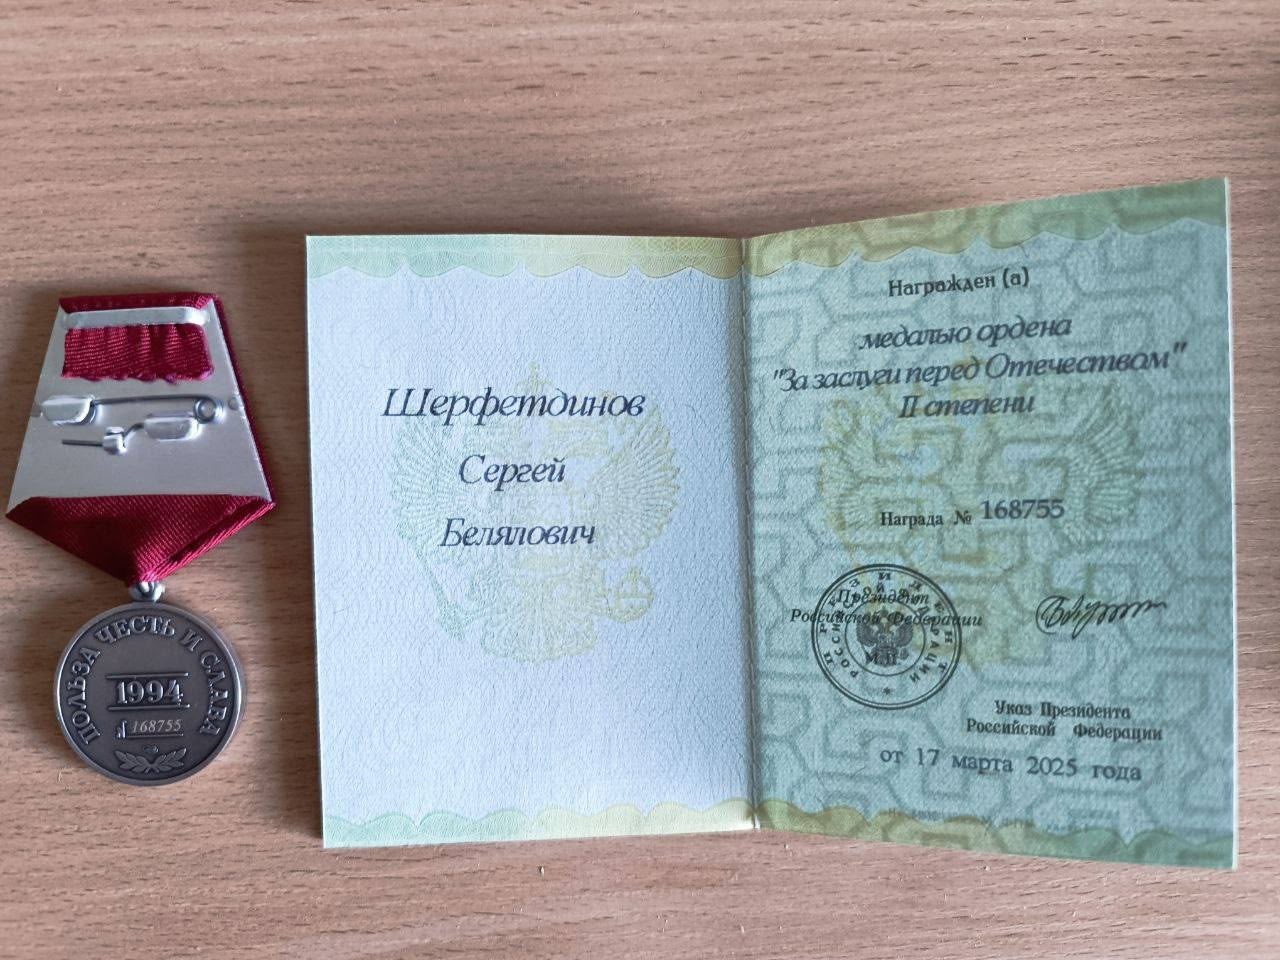 ПОЛЬЗА ЧЕСТЬ И СЛАВА
1994
№ 168755
Шерфетдинов
Сергей
Белялович
Награжден (а)
медалью ордена
"За заслуги перед Отечеством"
II степени
Награда № 168755
Президент
Российской Федерации
М.П.
Указ Президента
Российской Федерации
от 17 марта 2025 года